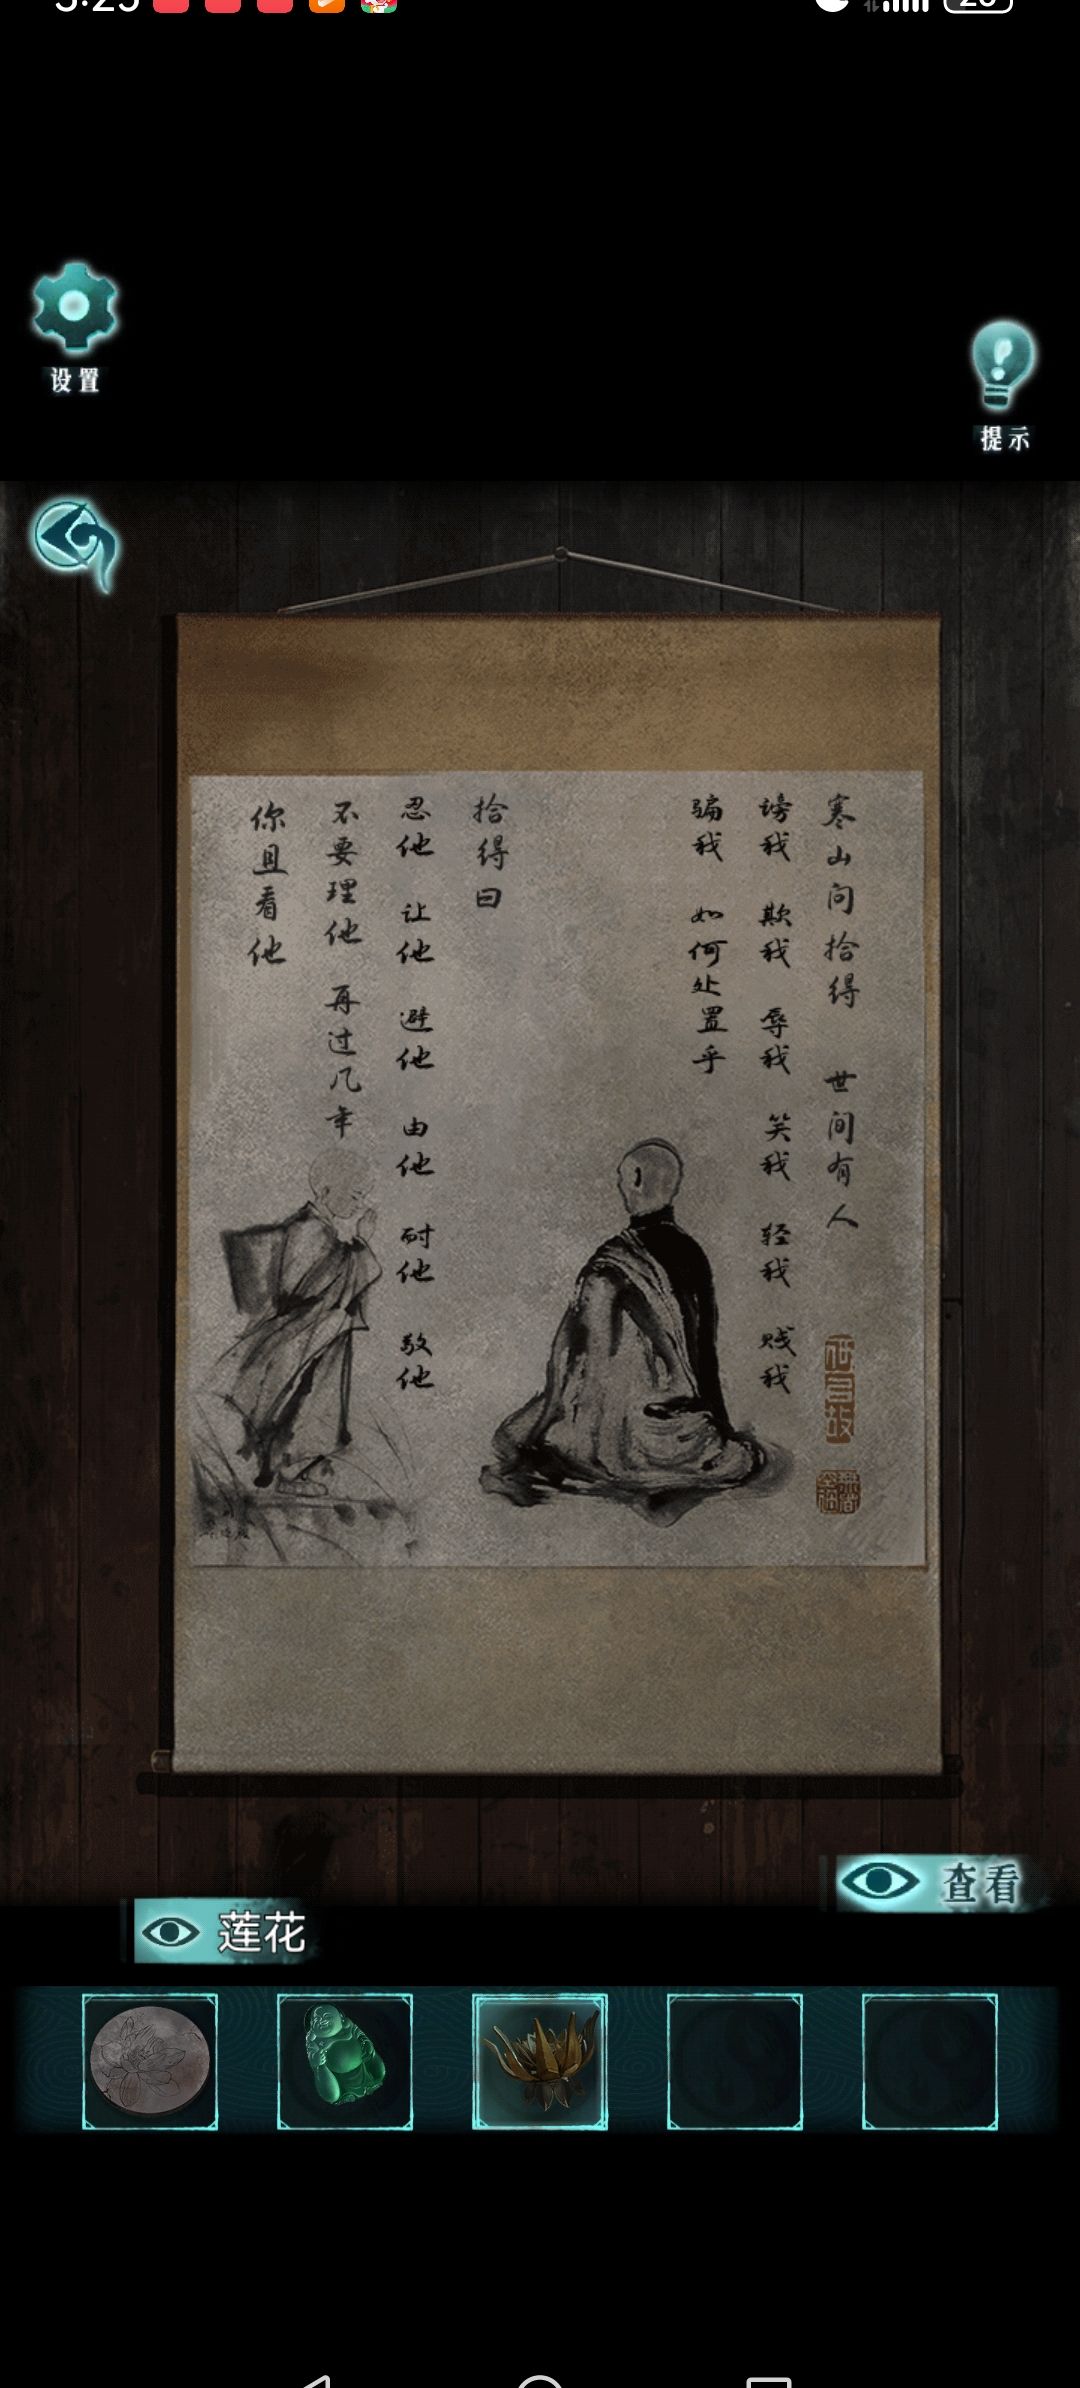 设置
提示
寒山问拾得 世间有人
谤我 欺我 辱我 笑我 轻我 贱我
骗我 如何处置乎
拾得曰
忍他 让他 避他 由他 耐他 敬他
不要理他 再过几年
你且看他
查看
莲花